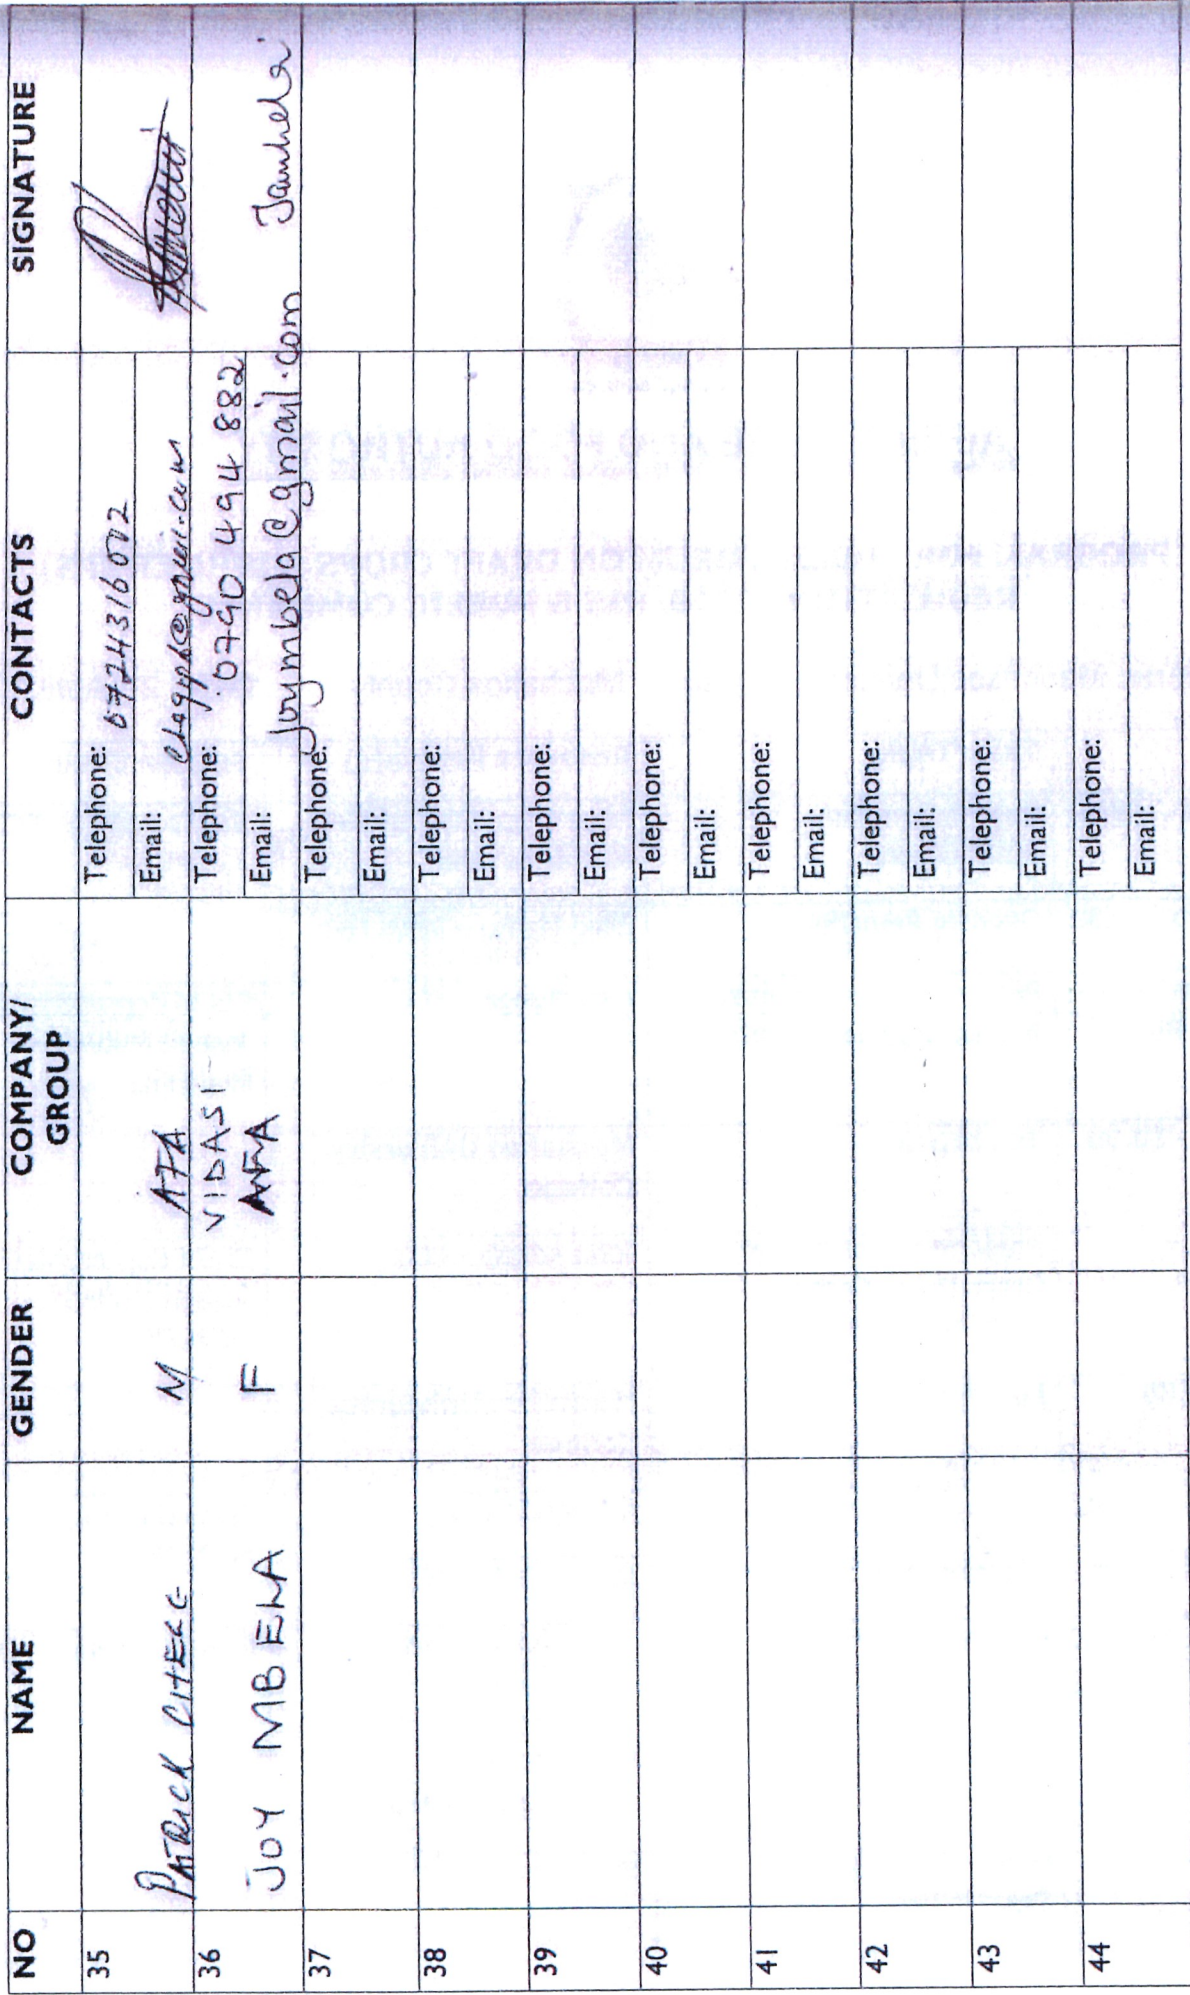 NO NAME GENDER COMPANY/ GROUP CONTACTS SIGNATURE
35 PATRICK M AFA Telephone: 0724316002
Email:
36 JOY MBELA F VIDASI Telephone: 0790 494 882
Email: joymbela@gmail.com
37 Telephone:
Email:
38 Telephone:
Email:
39 Telephone:
Email:
40 Telephone:
Email:
41 Telephone:
Email:
42 Telephone:
Email:
43 Telephone:
Email:
44 Telephone:
Email: